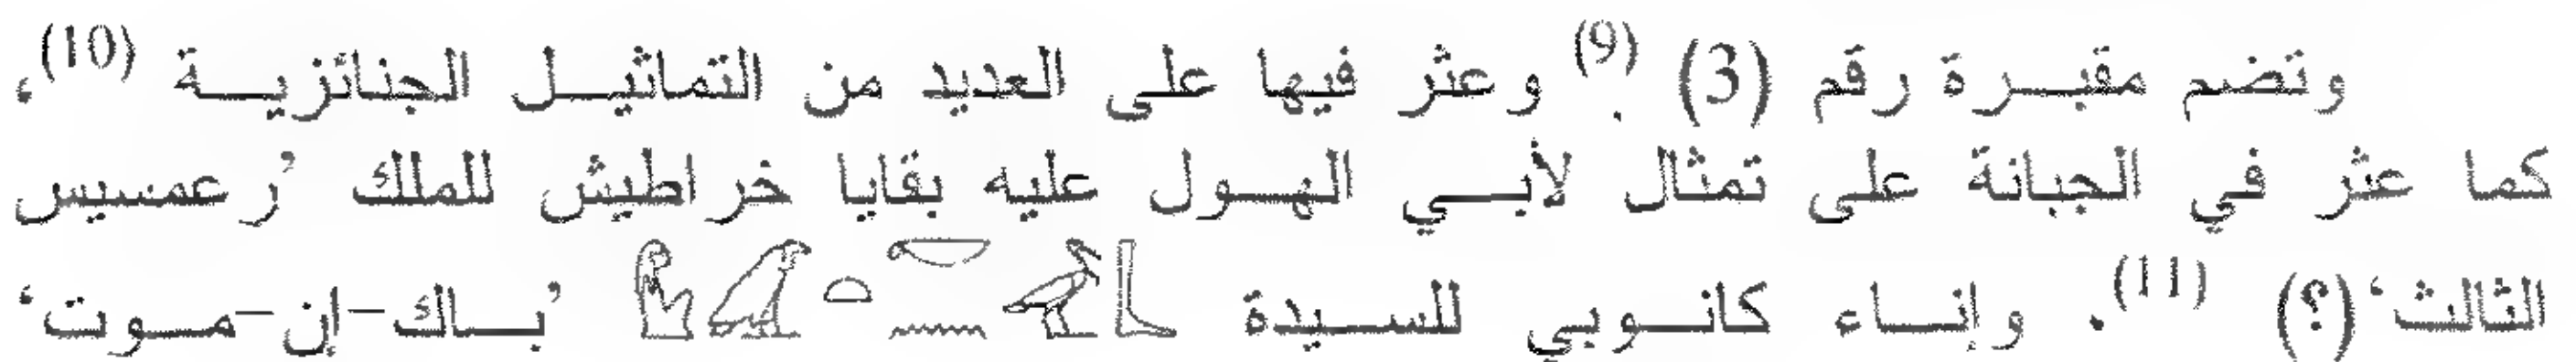 وتضم مقبرة رقم (3) (9). وعثر فيها على العديد من التماثيل الجنائزية (10)،
كما عثر في الجبانة على تمثال لأبي الهول عليه بقايا خراطيش للملك ’رعمسيس
الثالث‘ (؟) (11). وإناء كانوبي للسيدة ’باك-إن-موت‘